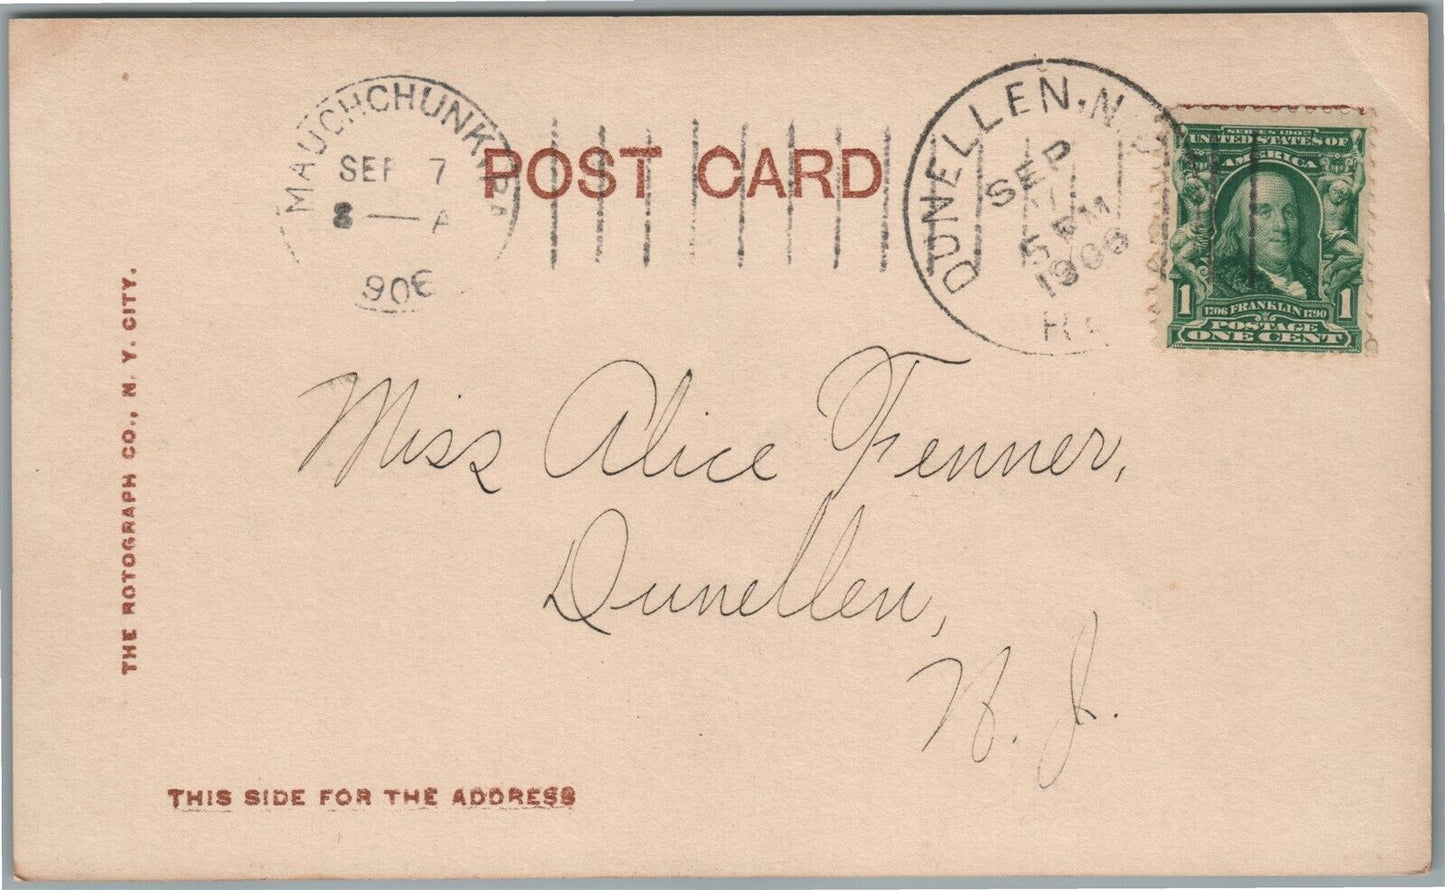 MAUCH CHUNK, PA.
SEP 7
8 — A
1906
POST CARD
DUNELLEN, N.J.
SEP
5 PM
1906
SERIES 1902
UNITED STATES OF
AMERICA
1 1706 FRANKLIN 1790 1
POSTAGE
ONE CENT
THE ROTOGRAPH CO., N. Y. CITY.
Miss Alice Fenner,
Dunellen,
N. J.
THIS SIDE FOR THE ADDRESS